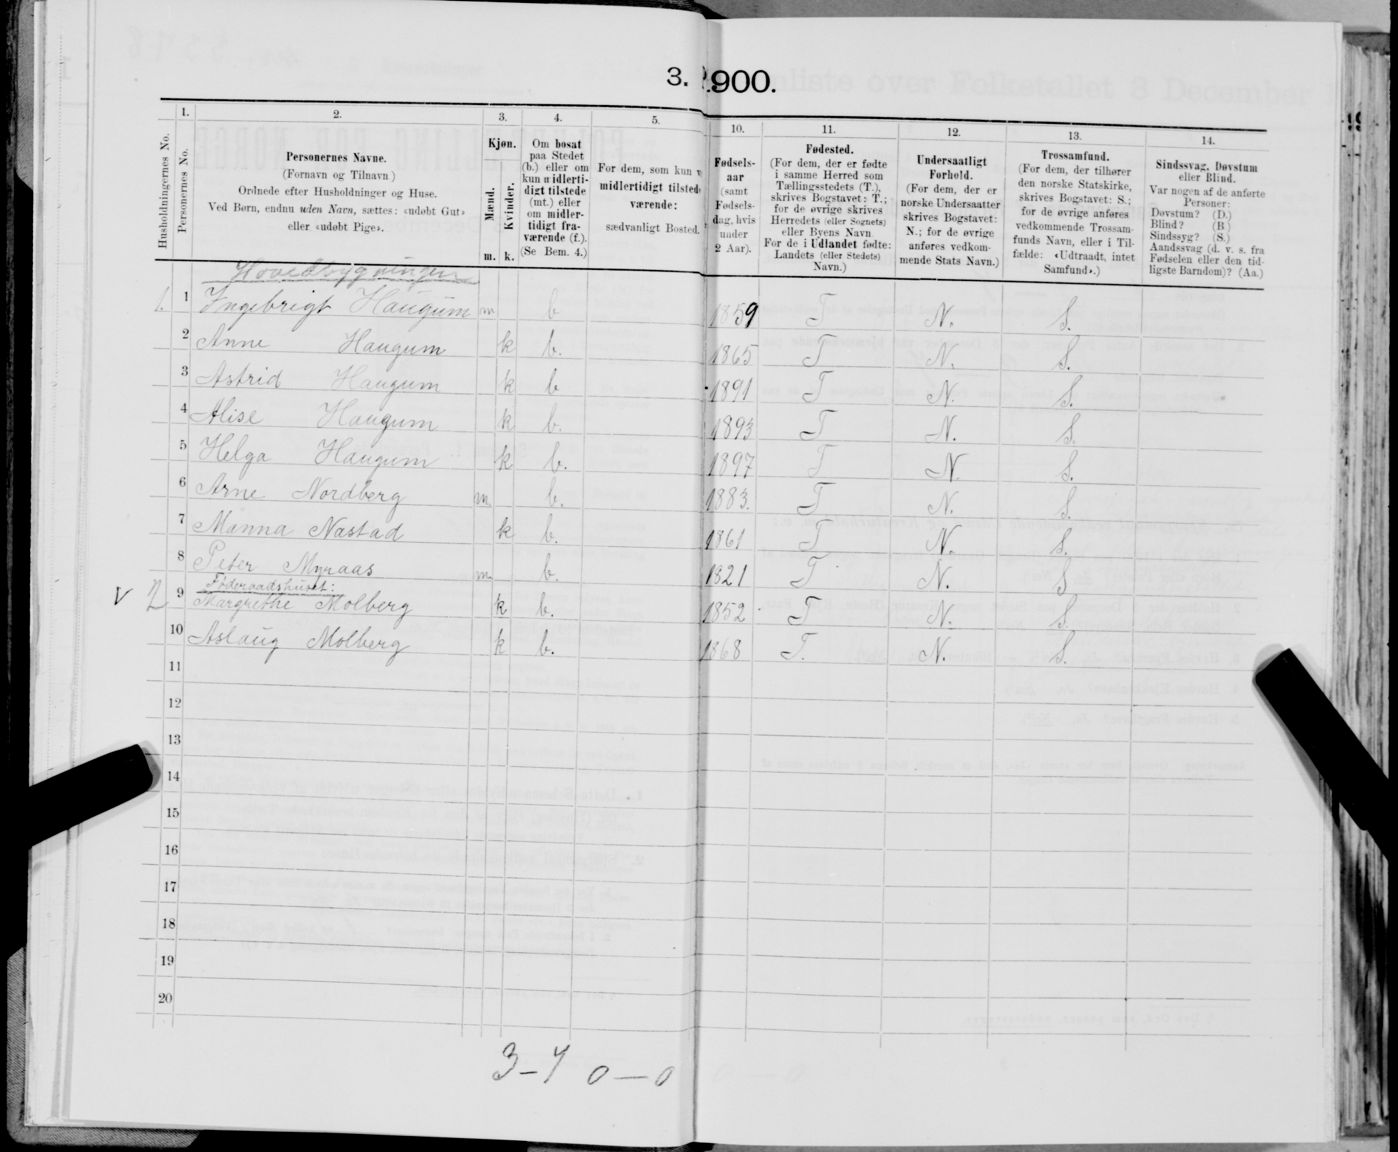 3. 900.
1. 2. 3. 4. 5. 10. 11. 12. 13. 14.
Husholdningernes No.
Personernes No.
Personernes Navne.
(Fornavn og Tilnavn.)
Ordnede efter Husholdninger og Huse.
Ved Børn, endnu uden Navn, sættes: «udøbt Gut»
eller «udøbt Pige».
Kjøn.
Mænd.
Kvinder.
m. k.
Om bosat
paa Stedet
(b.) eller om
kun midlerti-
digt tilstede
(mt.) eller
om midler-
tidigt fra-
værende (f.).
(Se Bem. 4.)
For dem, som kun
midlertidigt tilstede
værende:
sædvanligt Bosted.
Fødsels-
aar
(samt
Fødsels-
dag, hvis
under
2 Aar).
Fødested.
(For dem, der er fødte
i samme Herred som
Tællingsstedets (T.),
skrives Bogstavet: T.;
for de øvrige skrives
Herredets (eller Sognets)
eller Byens Navn
For de i Udlandet fødte:
Landets (eller Stedets)
Navn.)
Undersaatligt
Forhold.
(For dem, der er
norske Undersaatter
skrives Bogstavet:
N.; for de øvrige
anføres vedkom-
mende Stats Navn.)
Trossamfund.
(For dem, der tilhører
den norske Statskirke,
skrives Bogstavet: S.;
for de øvrige anføres
vedkommende Trossam-
funds Navn, eller i Til-
fælde: «Udtraadt, intet
Samfund».)
Sindssvag, Døvstum
eller Blind.
Var nogen af de anførte
Personer:
Døvstum? (D.)
Blind? (B)
Sindssyg? (S.)
Aandssvag (d. v. s. fra
Fødselen eller den tid-
ligste Barndom)? (Aa.)
Hovedbygningen
1. 1 Ingebrigt Haugum m b 1859 T N. S.
2 Anne Haugum k b. 1865 T N. S.
3 Astrid Haugum k b 1891 T N. S.
4 Alise Haugum k b. 1893 T N. S.
5 Helga Haugum k b. 1897 T N S.
6 Arne Nordberg m b. 1883. T N. S.
7 Manna Nastad k b. 1861 T N. S.
8 Peter Myraas m b. 1821 T N. S
Føderaadshuset:
V 2 9 Margrethe Molberg k b. 1852 T N. S.
10 Aslaug Molberg k b. 1868 T. N. S.
11
12
13
14
15
16
17
18
19
20
3–7 0–0